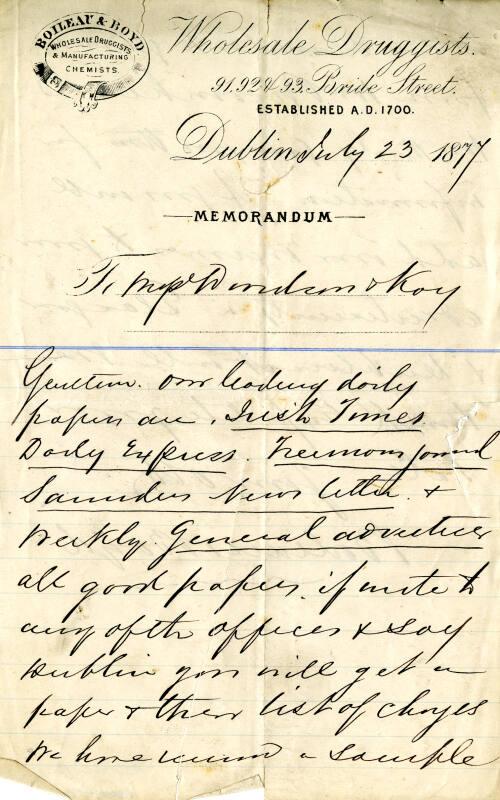 BOILEAU & BOYD
WHOLESALE DRUGGISTS
& MANUFACTURING
CHEMISTS.
Wholesale Druggists.
91.92 & 93. Bride Street.
ESTABLISHED A.D. 1700.
Dublin July 23 1877
MEMORANDUM
To Messrs Davidson & Kay
Gentlem. our leading daily
papers are. Irish Times
Daily Express. Freemans Journal
Saunders News letter. &
Weekly. General advertiser
all good papers. if write to
any of the offices & say
Dublin you will get a
paper & their list of charges
We have a sample